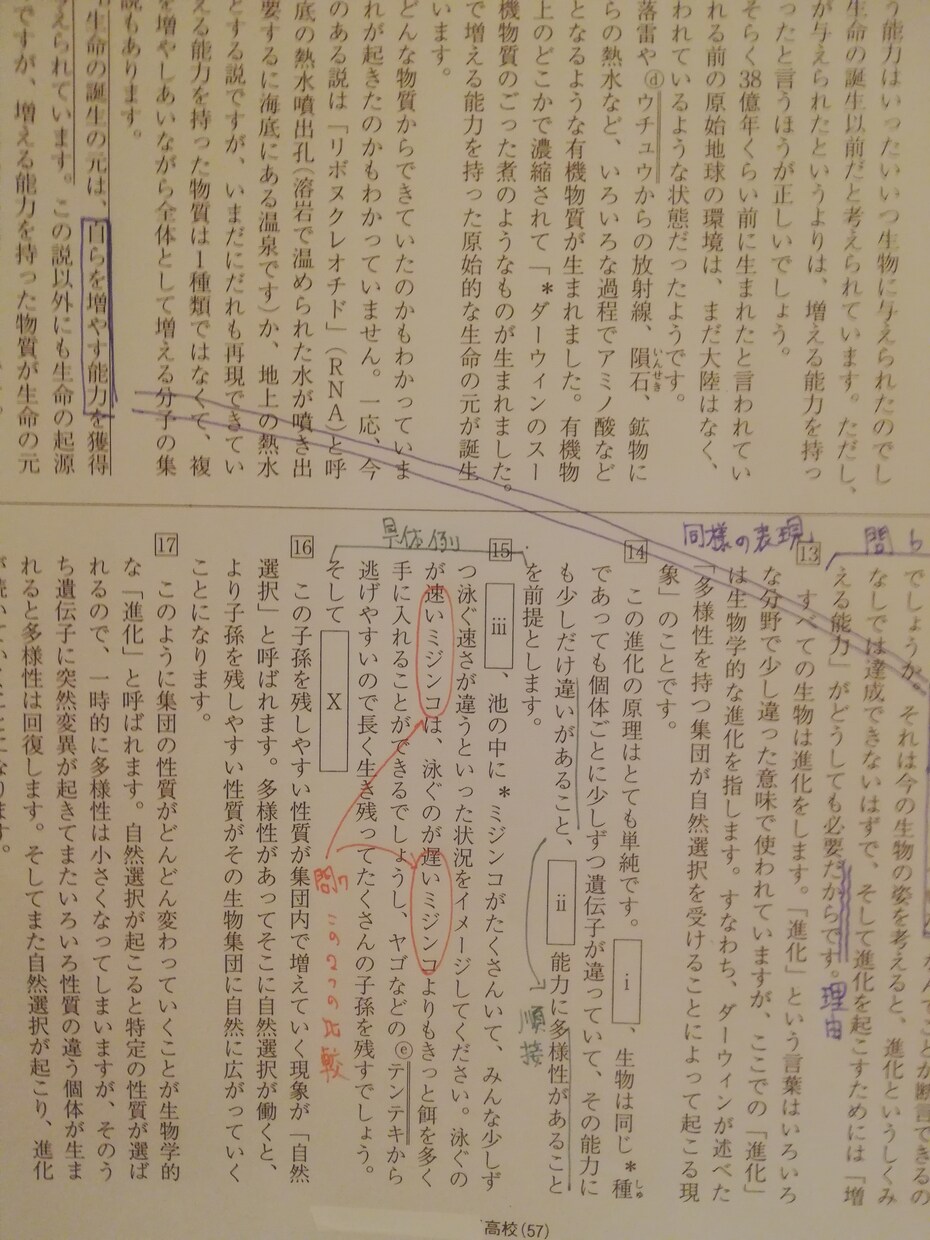 う能力はいったいいつ生物に与えられたのでし
生命の誕生以前だと考えられています。ただし、
が与えられたというよりは、増える能力を持っ
ったと言うほうが正しいでしょう。
そらく38億年くらい前に生まれたと言われてい
れる前の原始地球の環境は、まだ大陸はなく、
われているような状態だったようです。
落雷やⓓウチュウからの放射線、隕石、鉱物に
いんせき
らの熱水など、いろいろな過程でアミノ酸など
となるような有機物質が生まれました。有機物
上のどこかで濃縮されて「*ダーウィンのスー
機物質のごった煮のようなものが生まれました。
で増える能力を持った原始的な生命の元が誕生
います。
どんな物質からできていたのかもわかっていま
れが起きたのかもわかっていません。一応、今
のある説は「リボヌクレオチド」(RNA)と呼
底の熱水噴出孔(溶岩で温められた水が噴き出
要するに海底にある温泉です)か、地上の熱水
とする説ですが、いまだにだれも再現できてい
える能力を持った物質は1種類ではなくて、複
を増やしあいながら全体として増える分子の集
説もあります。
生命の誕生の元は、自らを増やす能力を獲得
えられています。この説以外にも生命の起源
ですが、増える能力を持った物質が生命の元
問6
でしょうか。それは今の生物の姿を考えると、進化というしくみ
なしでは達成できないはずで、そして進化を起こすためには「増
える能力」がどうしても必要だからです。
理由
同様の表現
13 すべての生物は進化をします。「進化」という言葉はいろいろ
な分野で少し違った意味で使われていますが、ここでの「進化」
は生物学的な進化を指します。すなわち、ダーウィンが述べた
「多様性を持つ集団が自然選択を受けることによって起こる現
象」のことです。
14 この進化の原理はとても単純です。 i 、生物は同じ*種
しゅ
であっても個体ごとに少しずつ遺伝子が違っていて、その能力に
も少しだけ違いがあること、 ii 能力に多様性があること
を前提とします。
順接
具体例
15 iii 、池の中に*ミジンコがたくさんいて、みんな少しず
つ泳ぐ速さが違うといった状況をイメージしてください。泳ぐの
が速いミジンコは、泳ぐのが遅いミジンコよりもきっと餌を多く
手に入れることができるでしょうし、ヤゴなどのⓔテンテキから
逃げやすいので長く生き残ってたくさんの子孫を残すでしょう。
そして X
問7 この2つの比較
16 この子孫を残しやすい性質が集団内で増えていく現象が「自然
選択」と呼ばれます。多様性があってそこに自然選択が働くと、
より子孫を残しやすい性質がその生物集団に自然に広がっていく
ことになります。
17 このように集団の性質がどんどん変わっていくことが生物学的
な「進化」と呼ばれます。自然選択が起こると特定の性質が選ば
れるので、一時的に多様性は小さくなってしまいますが、そのう
ち遺伝子に突然変異が起きてまたいろいろ性質の違う個体が生ま
れると多様性は回復します。そしてまた自然選択が起こり、進化
高校(57)